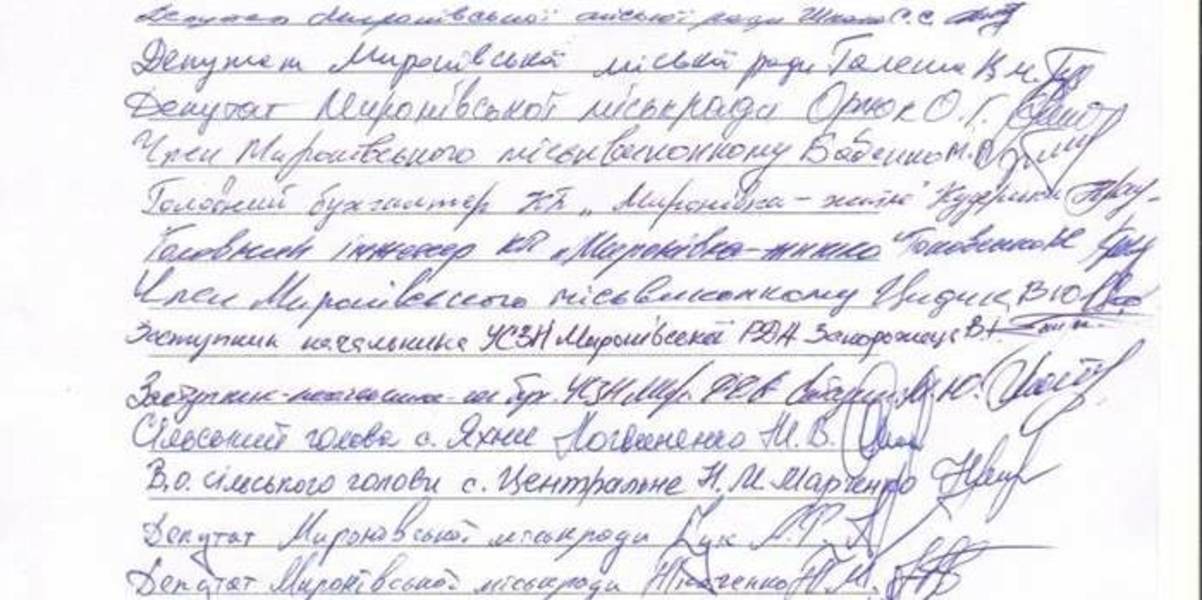 Депутат Миронівської міської ради С.С.
Депутат Миронівської міської ради Галеша В.М.
Депутат Миронівської міськради О.Г.
Член Миронівського міськвиконкому Бабенко М.
Головний бухгалтер КП „Миронівка-житло"
Головний інженер КП „Миронівка-житло"
Член Миронівського міськвиконкому Цидик В.Ю.
Заступник начальника УСЗН Миронівської РДА Запорожець В.
Заступник УСЗН Ю.
Сільський голова с. Яхни Логвиненко М.В.
В.о. сільського голови с. Центральне Н.М. Марченко
Депутат Миронівської міськради
Депутат Миронівської міськради Ткаченко Н.М.